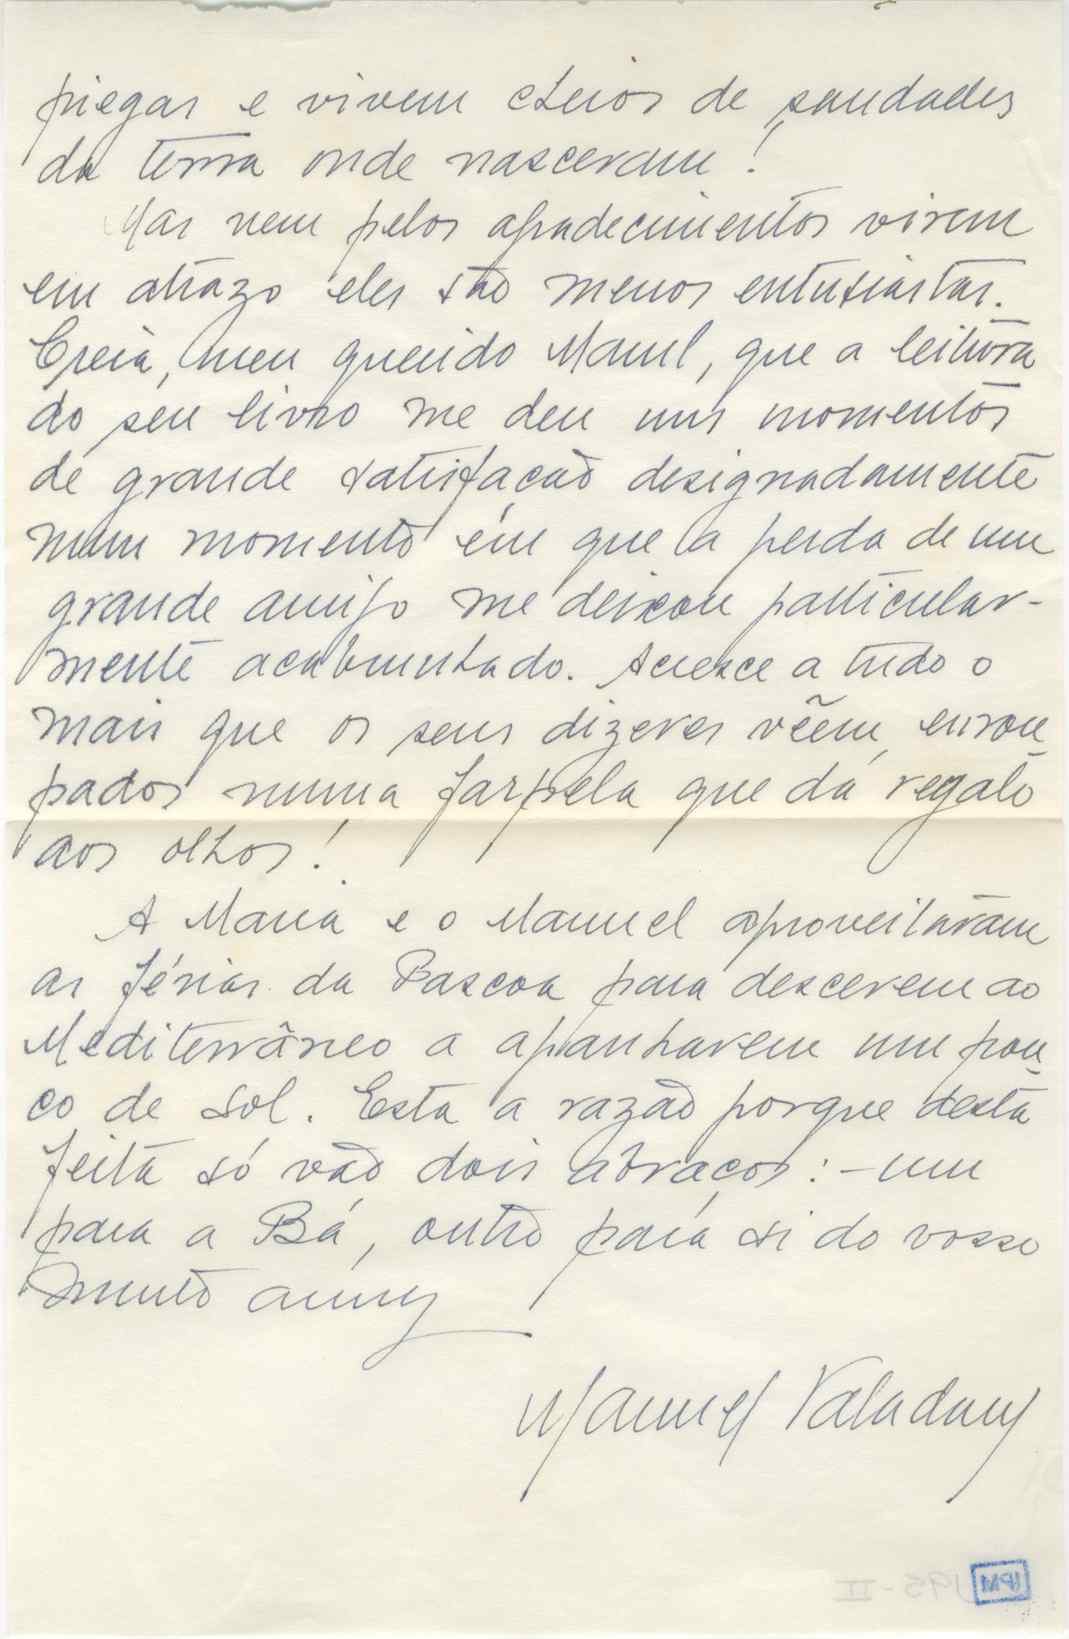 piegas e vivem cheios de saudades
da terra onde nasceram!
Mas nem pelos agradecimentos virem
em atrazo eles são menos entusiastas.
Creia, meu querido Manuel, que a leitura
do seu livro me deu uns momentos
de grande satisfação designadamente
num momento em que a perda de um
grande amigo me deixou particular-
mente acabrunhado. Acresce a tudo o
mais que os seus dizeres vêem enrou
pados numa farpela que dá regalo
aos olhos!
A Maria e o Manuel aproveitaram
as férias da Pascoa para descerem ao
Mediterrâneo a apanharem um pou
co de sol. Esta a razão porque desta
feita só vão dois abraços: - um
para a Bá, outro para si do vosso
muito amigo
Manuel Valadares
195-II
IPM